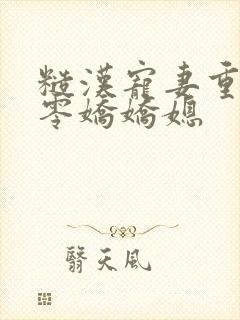 糙漢寵妻重
零嬌嬌媳
翳天風